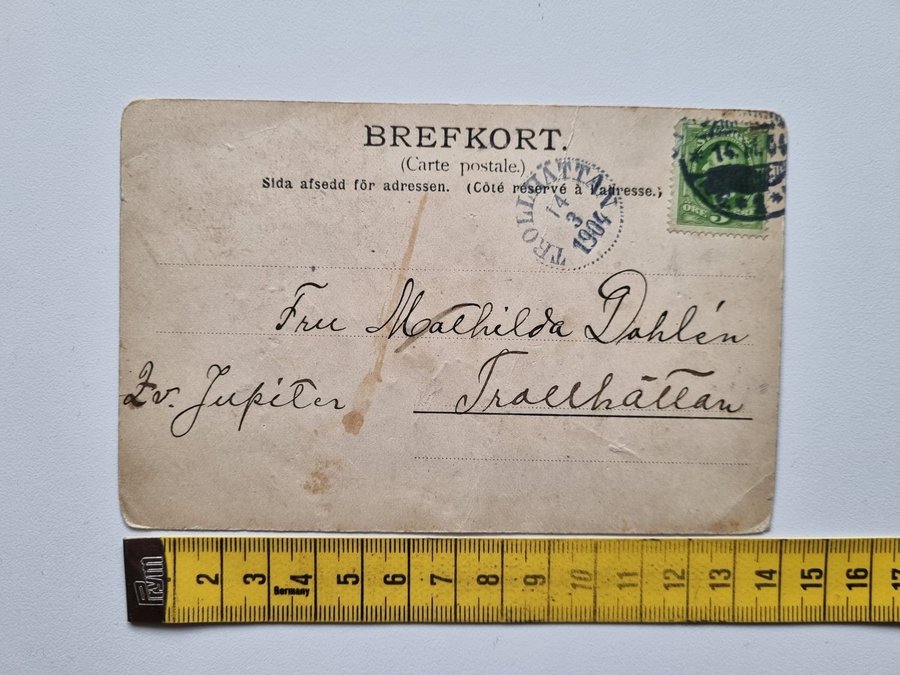 BREFKORT.
(Carte postale.)
Sida afsedd för adressen. (Côté réservé à l'adresse.)
TROLLHÄTTAN
14
3
1904
ÖRE 5
Fru Mathilda Dahlén
Zv. Jupiter
Trollhättan
Prym
2 3 4 5 6 7 8 9 10 11 12 13 14 15 16 17
Germany